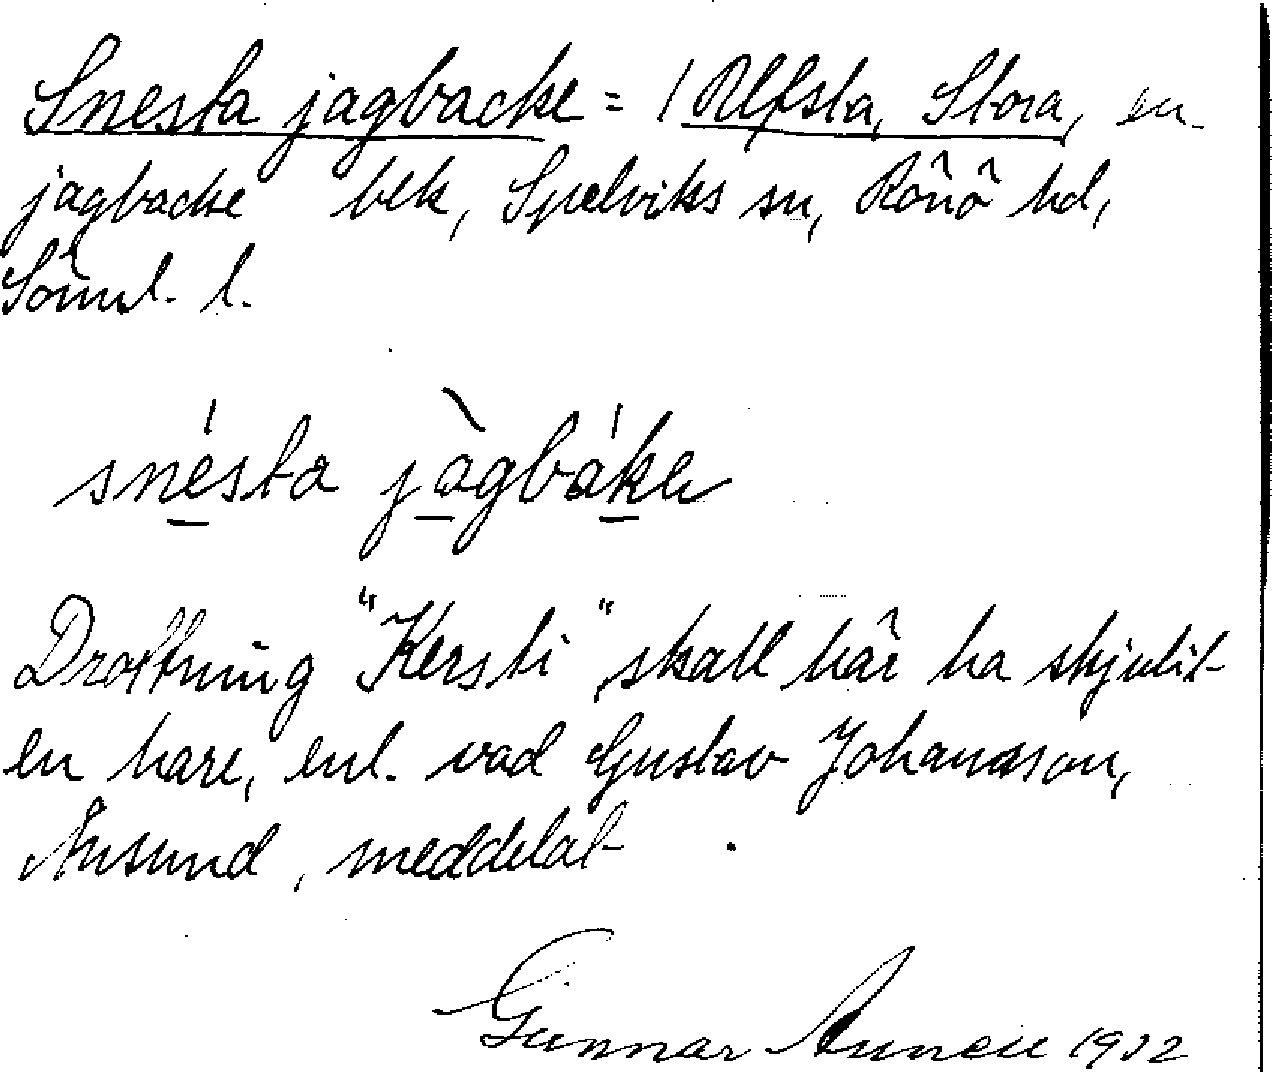 Snesta jagbacke = / Ulfsta, Stora, en
jagbacke bek, Spelviks sn, Rönö hd,
Söml. l.
snésta jàgbáke
Drottning "Kersti" skall här ha skjutit
en hare, enl. vad Gustav Johansson,
Ånsund, meddelat.
Gunnar 1932